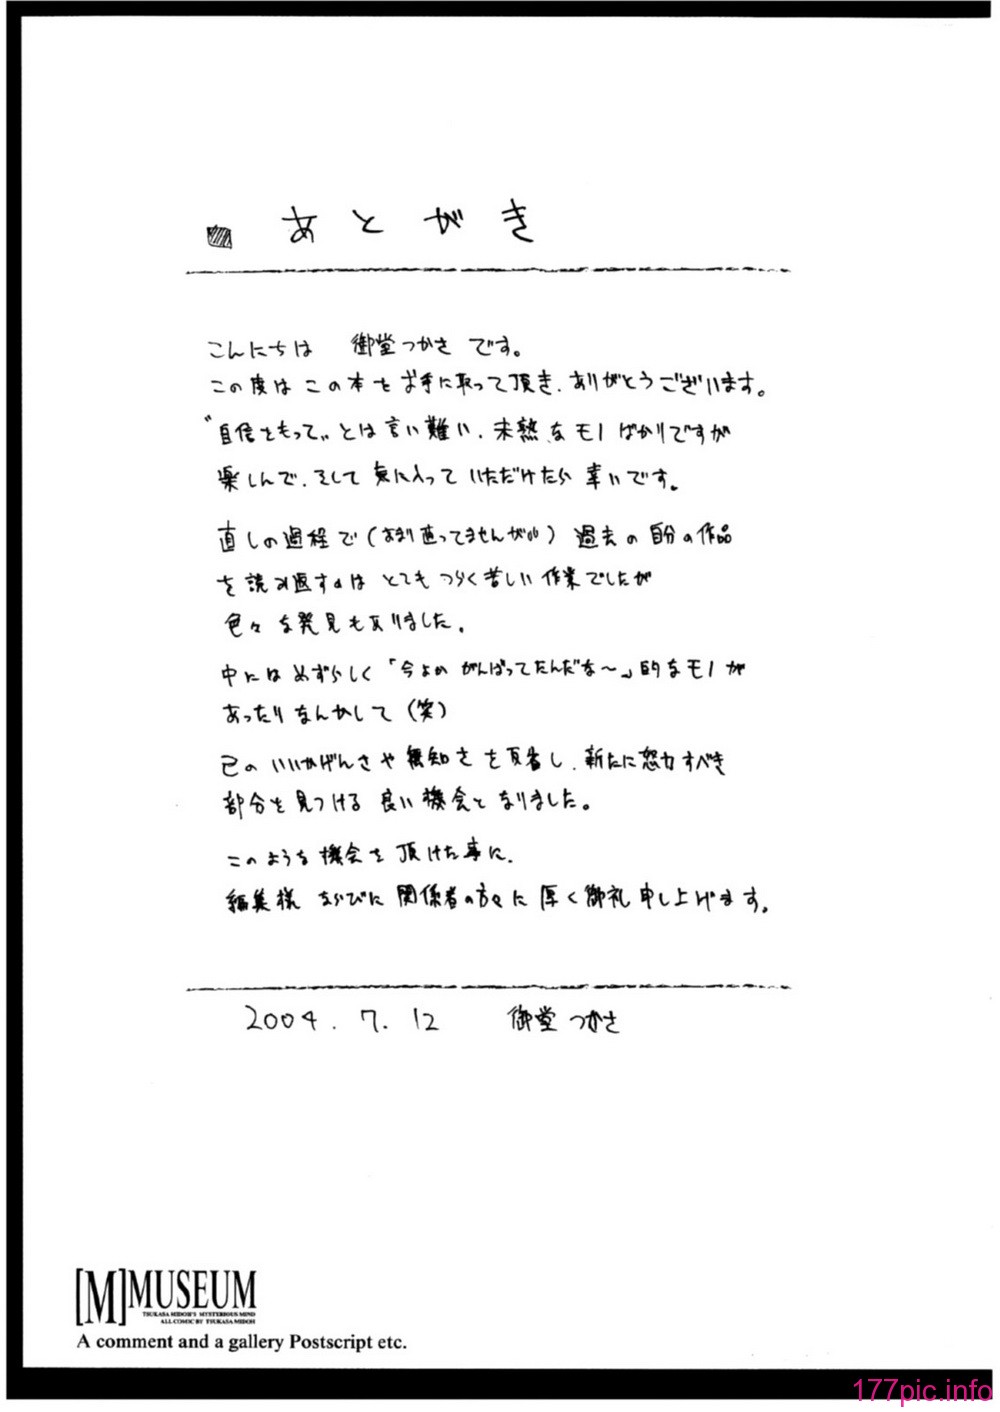 あとがき
こんにちは 御堂つかさ です。
この度は この本を お手に取って頂き、ありがとうございます。
"自信をもって"とは言い難い、未熟なモノばかりですが
楽しんで、そして 気に入って いただけたら 幸いです。
直しの過程で(あまり直ってませんが) 過去の自分の作品
を読み返すのは とても つらく苦しい 作業でしたが
色々な発見もありました。
中には めずらしく 「今よか がんばってたんだな〜」的なモノが
あったりなんかして(笑)
己の いいかげんさや 無知さを 反省し、新たに努力すべき
部分を見つける 良い機会となりました。
このような機会を頂けた事に、
編集様 ならびに 関係者の方々に 厚く御礼申し上げます。
2004.7.12 御堂つかさ
[M]MUSEUM
TSUKASA MIDOH'S MYSTERIOUS MIND
ALL COMIC BY TSUKASA MIDOH
A comment and a gallery Postscript etc.
177pic.info